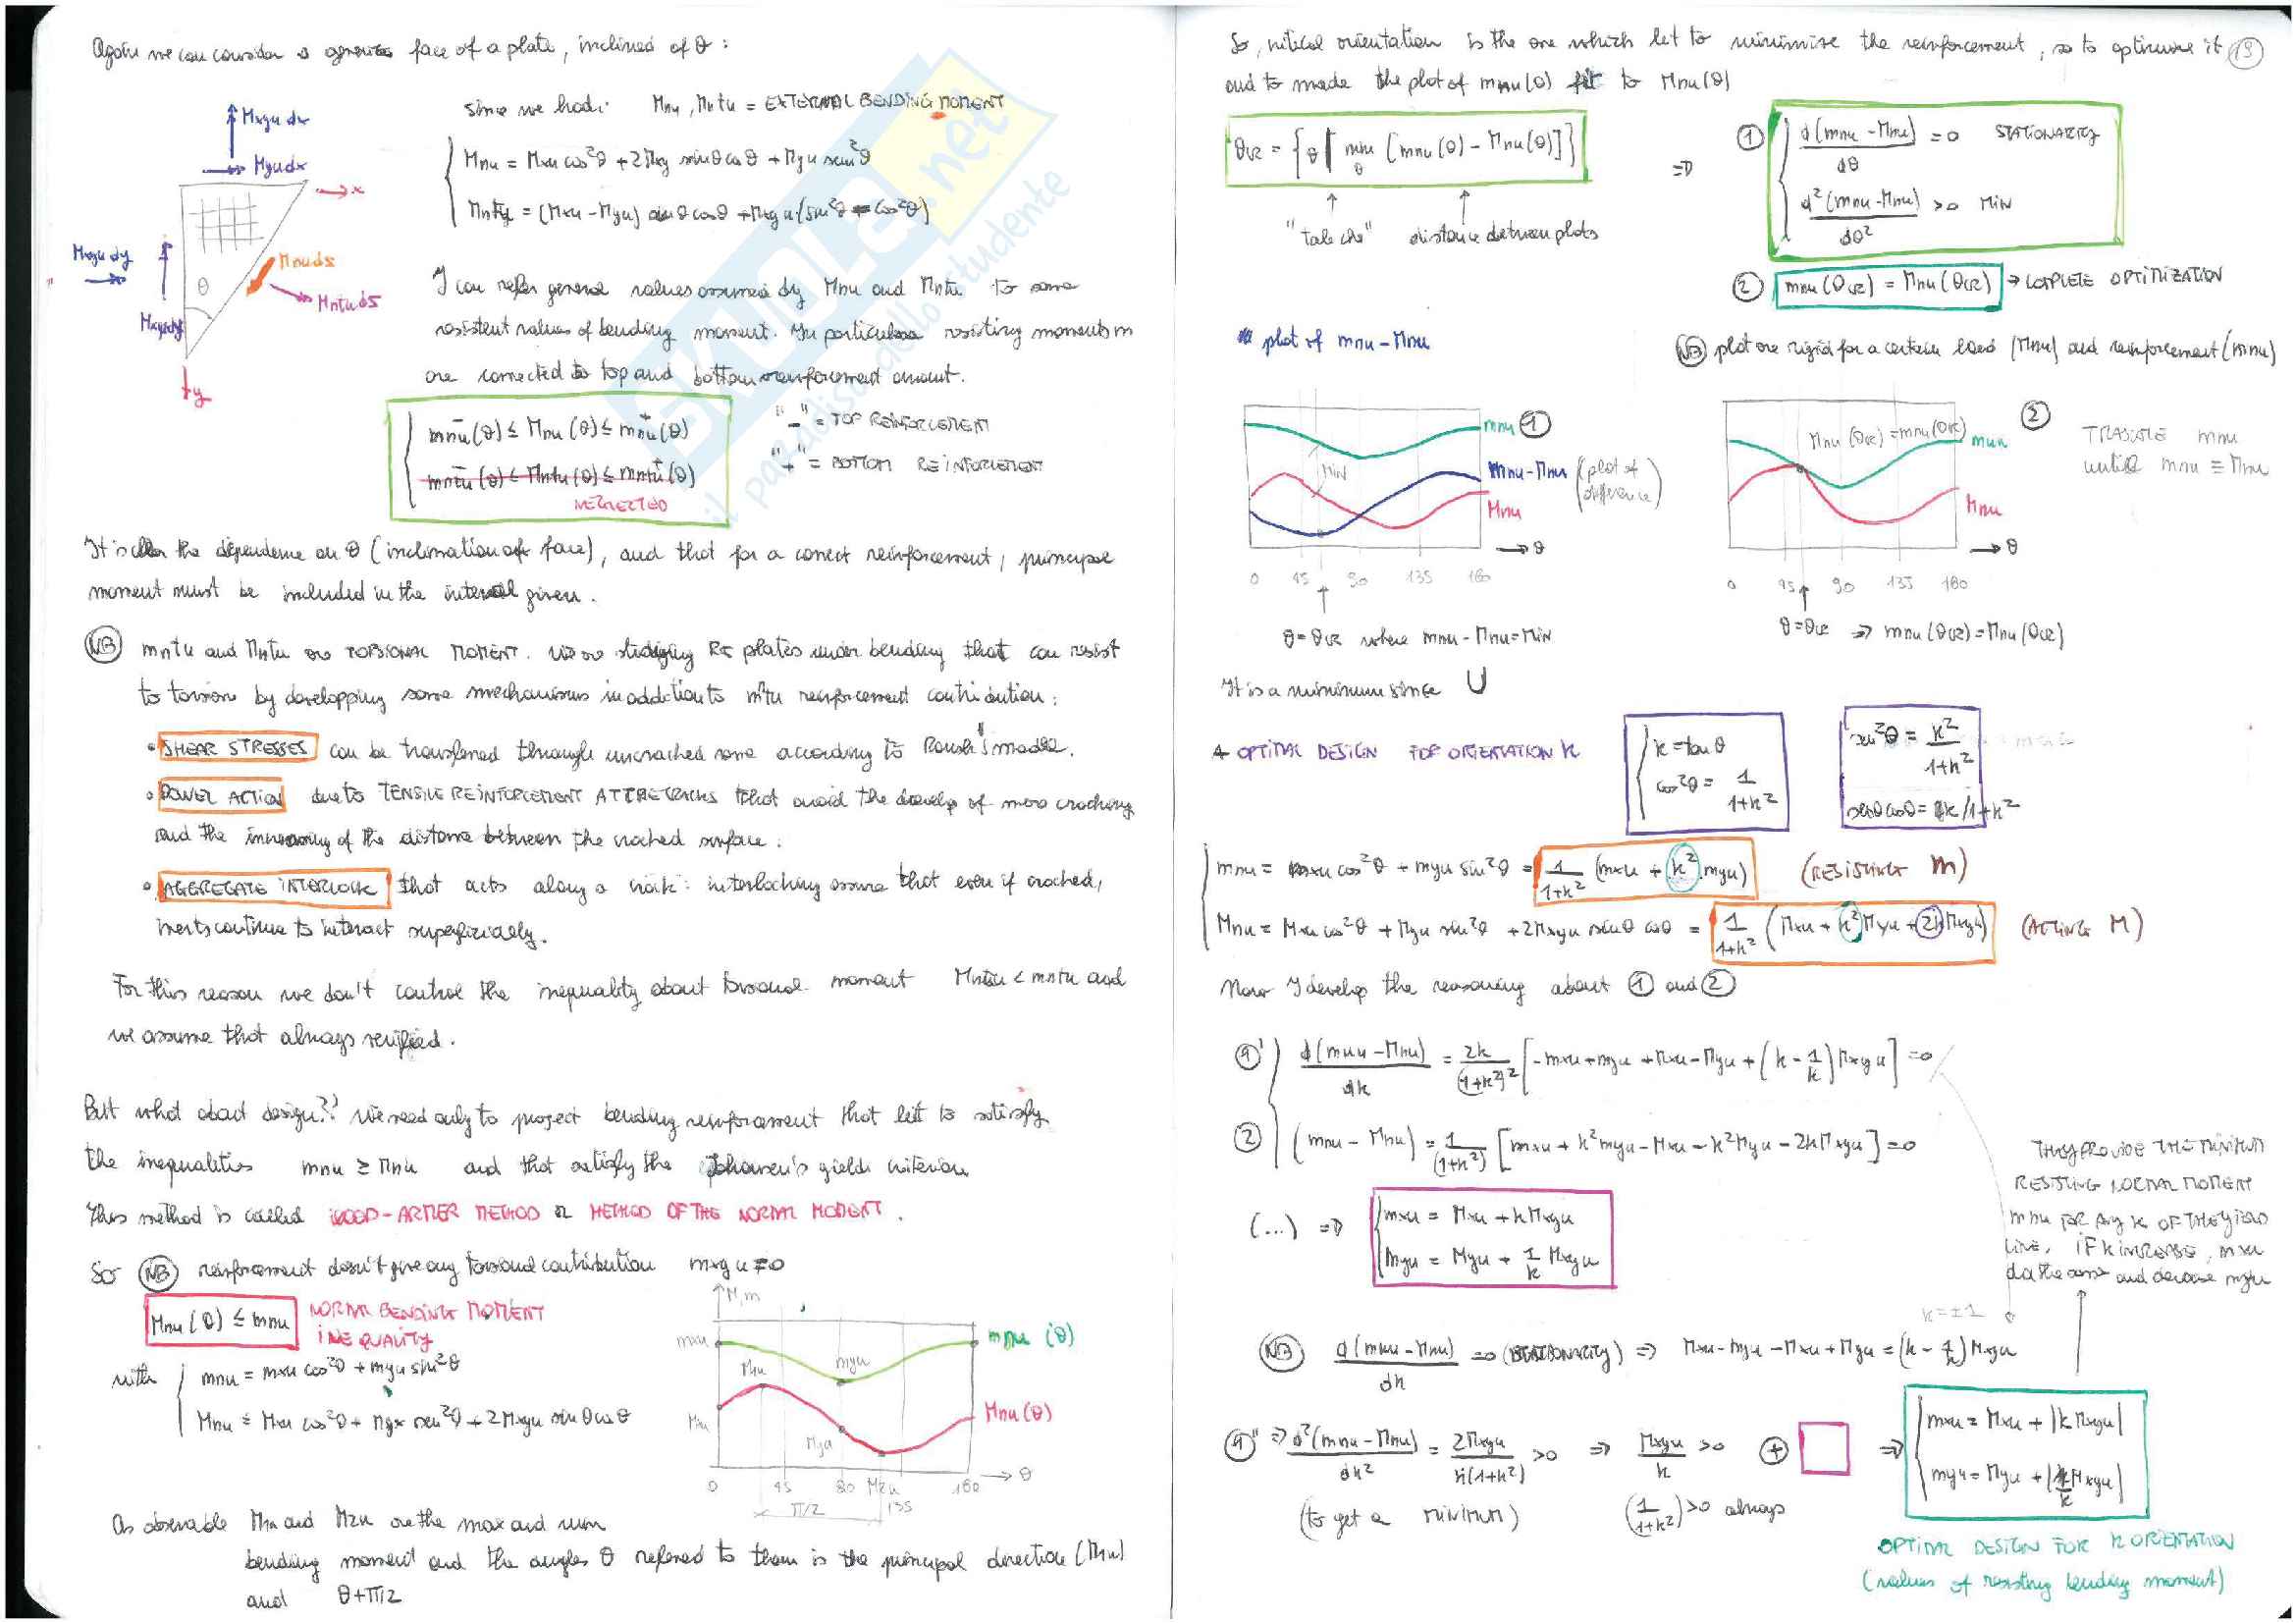 Again we can consider a generic face of a plate, inclined of θ :
Mxyu dx
Myu dx
→ x
Mxyu dy
θ
Mnu ds
Mntu ds
Mxu dy
↓ y
Since we had: Mnu, Mntu = EXTERNAL BENDING MOMENT
Mnu = Mxu cos²θ + 2Mxy sinθ cosθ + Myu sen²θ
Mntu = (Mxu - Myu) sinθ cosθ + Mxyu (sin²θ - cos²θ)
I can refer general values assumed by Mnu and Mntu to some
resistent values of bending moment. In particular resisting moments m
are connected to top and bottom reinforcement amount.
mnu⁻(θ) ≤ Mnu(θ) ≤ mnu⁺(θ)
mntu⁻(θ) ≤ Mntu(θ) ≤ mntu⁺(θ)
NEGLECTED
"-" = TOP REINFORCEMENT
"+" = BOTTOM REINFORCEMENT
It is clear the dependence on θ (inclination of face), and that for a correct reinforcement, principal
moment must be included in the interval given.
NB mntu and Mntu are TORSIONAL MOMENT. We are studying RC plates under bending that can resist
to torsion by developping some mechanisms in addition to mtu reinforcement contribution:
• SHEAR STRESSES can be transferred through uncracked zone according to model.
• DOWEL ACTION due to TENSILE REINFORCEMENT AT THE CRACKS that avoid the develop of more cracking
and the increasing of the distance between the cracked surface.
• AGGREGATE INTERLOCK that acts along a crack: interlocking assure that even if cracked,
inerts continue to interact superficially.
For this reason we don't control the inequality about torsional moment Mntu < mntu and
we assume that always verified.
But what about design?? We need only to project bending reinforcement that let to satisfy
the inequalities mnu ≥ Mnu and that satisfy the Johansen's yield criterion
This method is called WOOD-ARMER METHOD or METHOD OF THE NORMAL MOMENT.
So NB reinforcement doesn't give any torsional contribution mxyu = 0
Mnu(θ) ≤ mnu NORMAL BENDING MOMENT
INEQUALITY
with
mnu = mxu cos²θ + myu sin²θ
Mnu = Mxu cos²θ + Myx sen²θ + 2Mxyu sinθ cosθ
M,m
mxu
myu
mnu (θ)
M1u
Mxu
Myu
Mnu (θ)
→ θ
0 45 90 M2u 135 180
π/2
As observable M1u and M2u are the max and min
bending moment and the angles θ refered to them is the principal direction (M1u)
and θ+π/2
So, critical orientation is the one which let to minimise the reinforcement, so to optimise it 19
and to made the plot of mnu(θ) fit to Mnu(θ)
θcr = {θ | min θ [mnu(θ) - Mnu(θ)]}
"tale che" distance between plots
⇒
1 d(mnu - Mnu)/dθ = 0 STATIONARITY
d²(mnu - Mnu)/dθ² > 0 MIN
2 mnu(θcr) = Mnu(θcr) → COMPLETE OPTIMIZATION
plot of mnu - Mnu
NB plot are rigid for a certain load (Mnu) and reinforcement (mnu)
mnu 1
MIN
mnu - Mnu (plot of difference)
Mnu
→ θ
0 45 90 135 180
θ = θcr where mnu - Mnu = MIN
Mnu(θcr) = mnu(θcr) mnu
2
TRASLATE mnu
until mnu ≡ Mnu
Mnu
→ θ
0 45 90 135 180
θ = θcr ⇒ mnu(θcr) = Mnu(θcr)
It is a minimum since ∪
OPTIMAL DESIGN FOR ORIENTATION K
k = tanθ
cos²θ = 1/1+k²
sen²θ = k²/1+k²
senθcosθ = k/1+k²
mnu = mxu cos²θ + myu sin²θ = 1/1+k² (mxu + k² myu) (RESISTING m)
Mnu = Mxu cos²θ + Myu sin²θ + 2Mxyu sinθ cosθ = 1/1+k² (Mxu + k² Myu + 2k Mxyu) (ACTING M)
Now I develop the reasoning about 1 and 2
1' d(mnu - Mnu)/dk = 2k/(1+k²)² [-mxu + myu + Mxu - Myu + (k - 1/k) Mxyu] = 0
2 (mnu - Mnu) = 1/(1+k²) [mxu + k²myu - Mxu - k²Myu - 2kMxyu] = 0
(...) ⇒
mxu = Mxu + kMxyu
myu = Myu + 1/k Mxyu
THEY PROVIDE THE MINIMUM
RESISTING NORMAL MOMENT
mnu FOR ANY K OF THE YIELD
LINE. IF K INCREASE, mxu
do the same and decrease myu
k = ±1
NB d(mnu - Mnu)/dk = 0 (STATIONARITY) ⇒ mxu - myu - Mxu + Myu = (k - 1/k) Mxyu
1'' ⇒ d²(mnu - Mnu)/dk² = 2Mxyu/k(1+k²) > 0 ⇒ Mxyu/k > 0 + ⇒
mxu = Mxu + |k Mxyu|
myu = Myu + |1/k Mxyu|
(to get a MINIMUM) (1/1+k²) > 0 always
OPTIMAL DESIGN FOR K ORIENTATION
(values of resisting bending moment)
SKUOLA.net
il paradiso dello studente